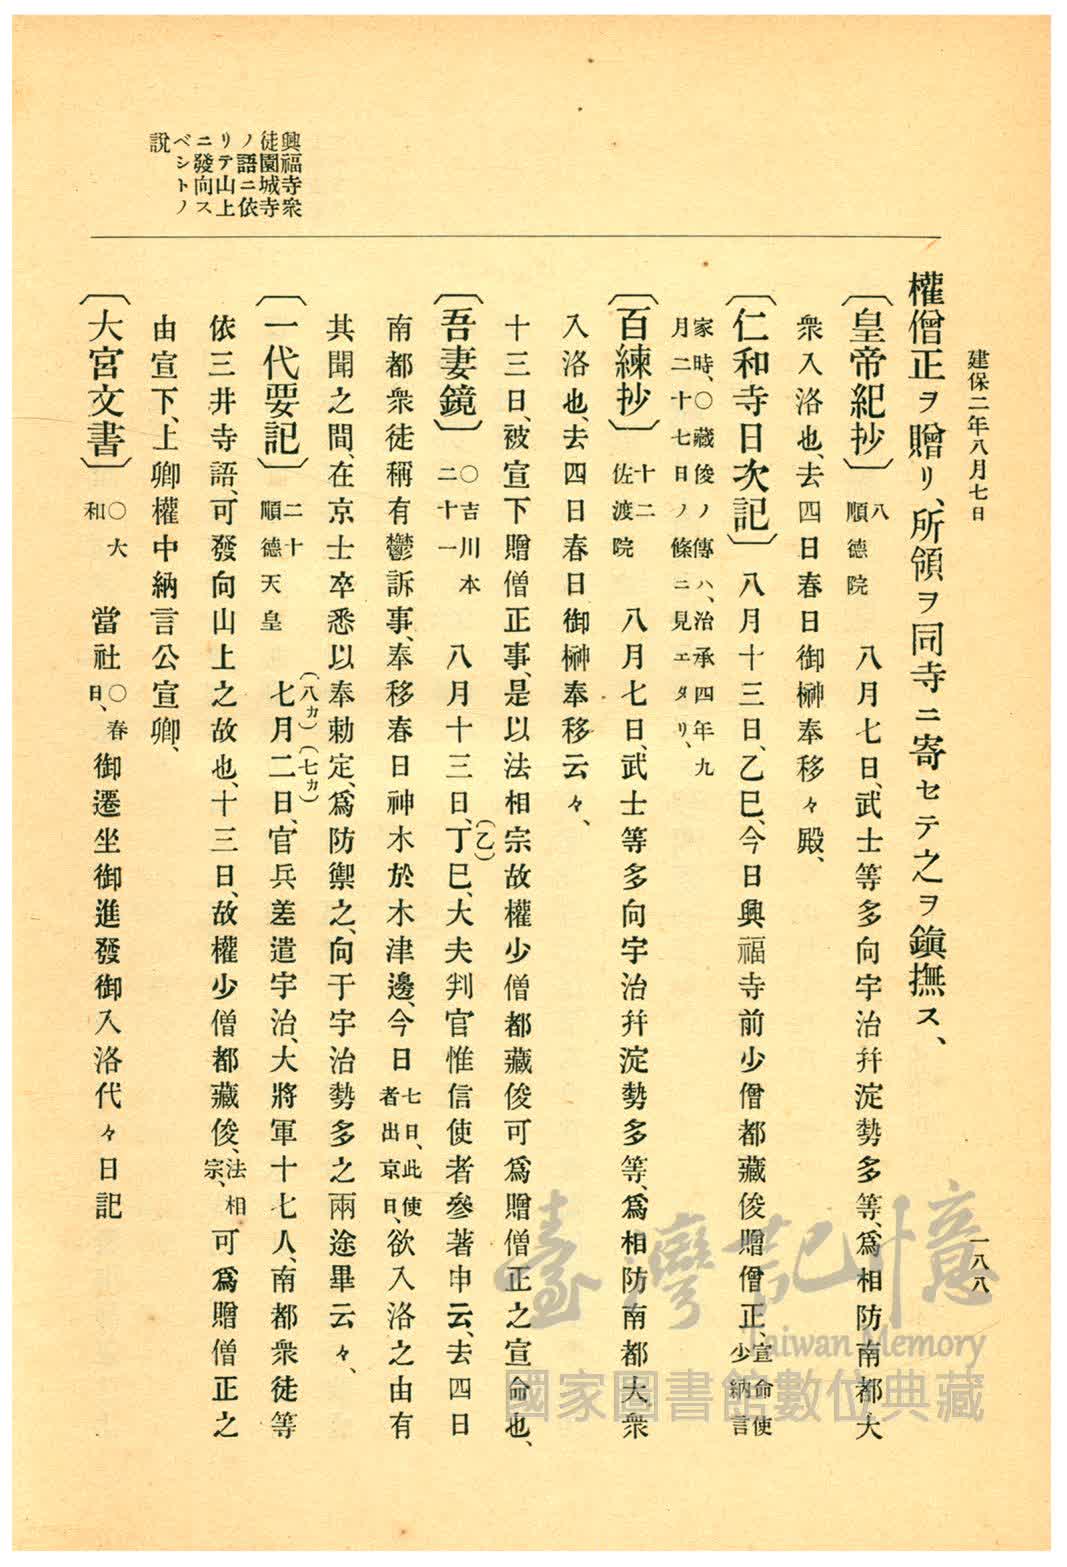 建保二年八月七日
一八八
權僧正ヲ贈リ、所領ヲ同寺ニ寄セテ之ヲ鎭撫ス、
〔皇帝紀抄〕八順德院 八月七日、武士等多向宇治幷淀勢多等、爲相防南都大
衆入洛也、去四日春日御榊奉移々殿、
〔仁和寺日次記〕八月十三日、乙巳、今日興福寺前少僧都藏俊贈僧正、宣命使少納言
家時、○藏俊ノ傳ハ、治承四年九月二十七日ノ條ニ見エタリ、
〔百練抄〕十二佐渡院 八月七日、武士等多向宇治幷淀勢多等、爲相防南都大衆
入洛也、去四日春日御榊奉移云々、
十三日、被宣下贈僧正事、是以法相宗故權少僧都藏俊可爲贈僧正之宣命也、
〔吾妻鏡〕○吉川本二十一 八月十三日、丁(乙)巳、大夫判官惟信使者參著申云、去四日
南都衆徒稱有鬱訴事、奉移春日神木於木津邊、今日七日、此使者出京日、欲入洛之由有
其聞之間、在京士卒悉以奉勅定、爲防禦之、向于宇治勢多之兩途畢云々、
〔一代要記〕二十順德天皇 七(八カ)月二(七カ)日、官兵差遣宇治、大將軍十七人、南都衆徒等
依三井寺語、可發向山上之故也、十三日、故權少僧都藏俊、法相宗、可爲贈僧正之
由宣下、上卿權中納言公宣卿、
〔大宮文書〕○大和 當社○春日、御遷坐御進發御入洛代々日記
興福寺衆
徒園城寺
ノ語ニ依
リテ山上
ニ發向ス
ベシトノ
說
臺灣記憶
Taiwan Memory
國家圖書館數位典藏